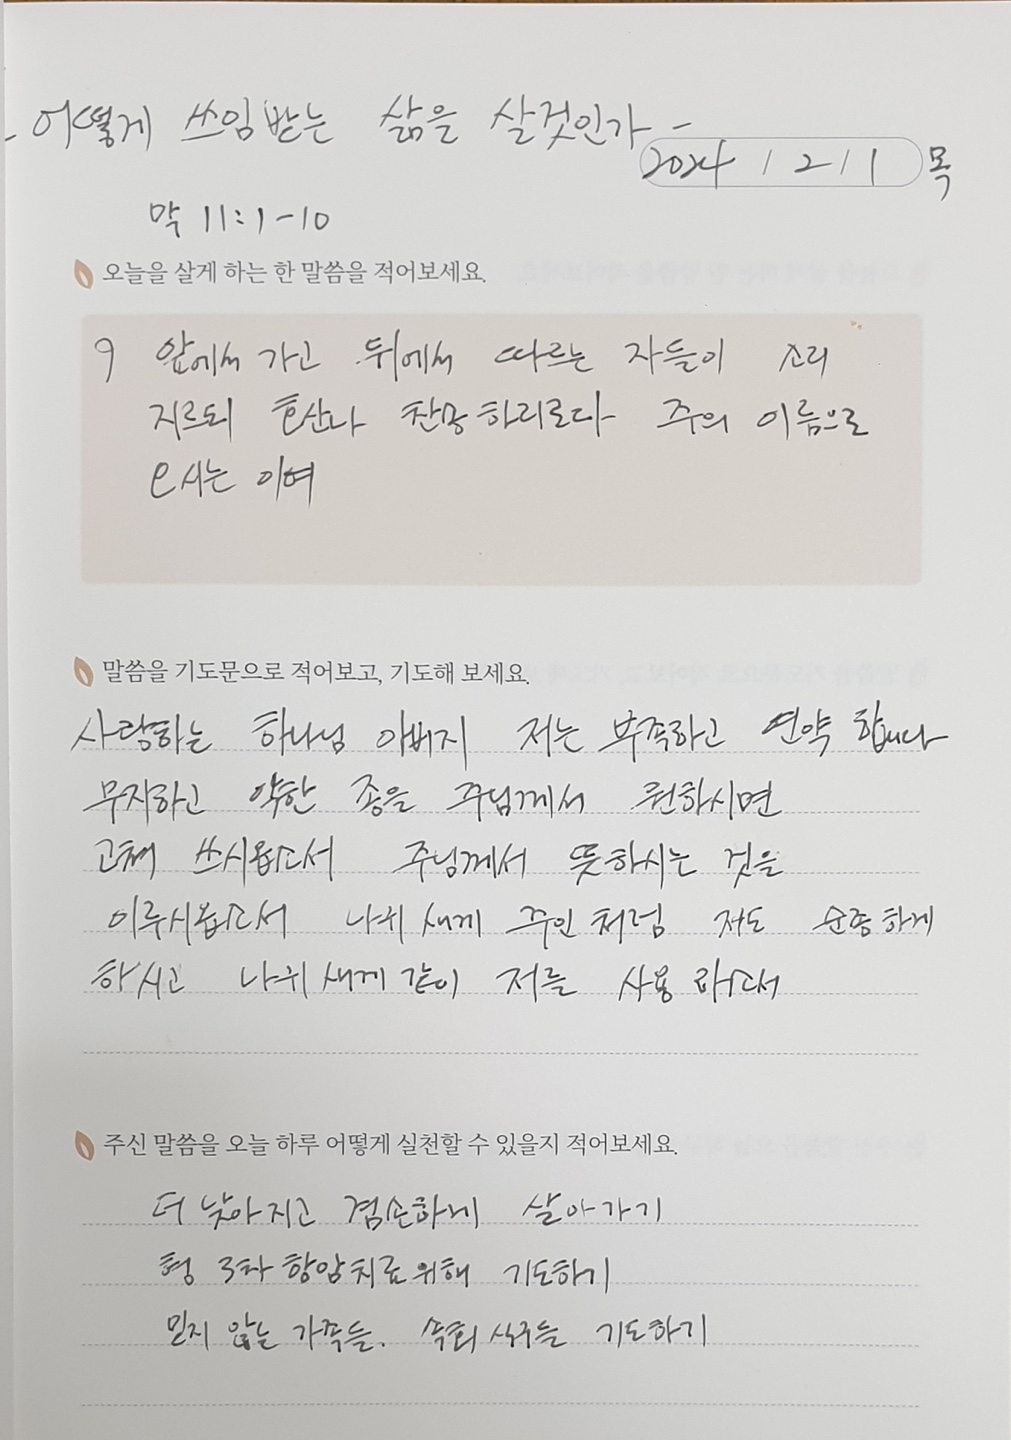 - 어떻게 쓰임 받는 삶을 살것인가 -
2024 / 2 / 1 목
막 11:1-10
오늘을 살게 하는 한 말씀을 적어보세요.
9 앞에서 가고 뒤에서 따르는 자들이 소리
지르되 호산나 찬송하리로다 주의 이름으로
오시는 이여
말씀을 기도문으로 적어보고, 기도해 보세요.
사랑하는 하나님 아버지 저는 부족하고 연약 합니다
무지하고 약한 종을 주님께서 원하시면
고쳐 쓰시옵소서 주님께서 뜻하시는 것을
이루시옵소서 나귀 새끼 주인 처럼 저도 순종 하게
하시고 나귀 새끼 같이 저를 사용 하소서
주신 말씀을 오늘 하루 어떻게 실천할 수 있을지 적어보세요.
더 낮아지고 겸손하게 살아가기
형 3차 항암치료 위해 기도하기
믿지 않는 가족들. 속회 식구들 기도하기